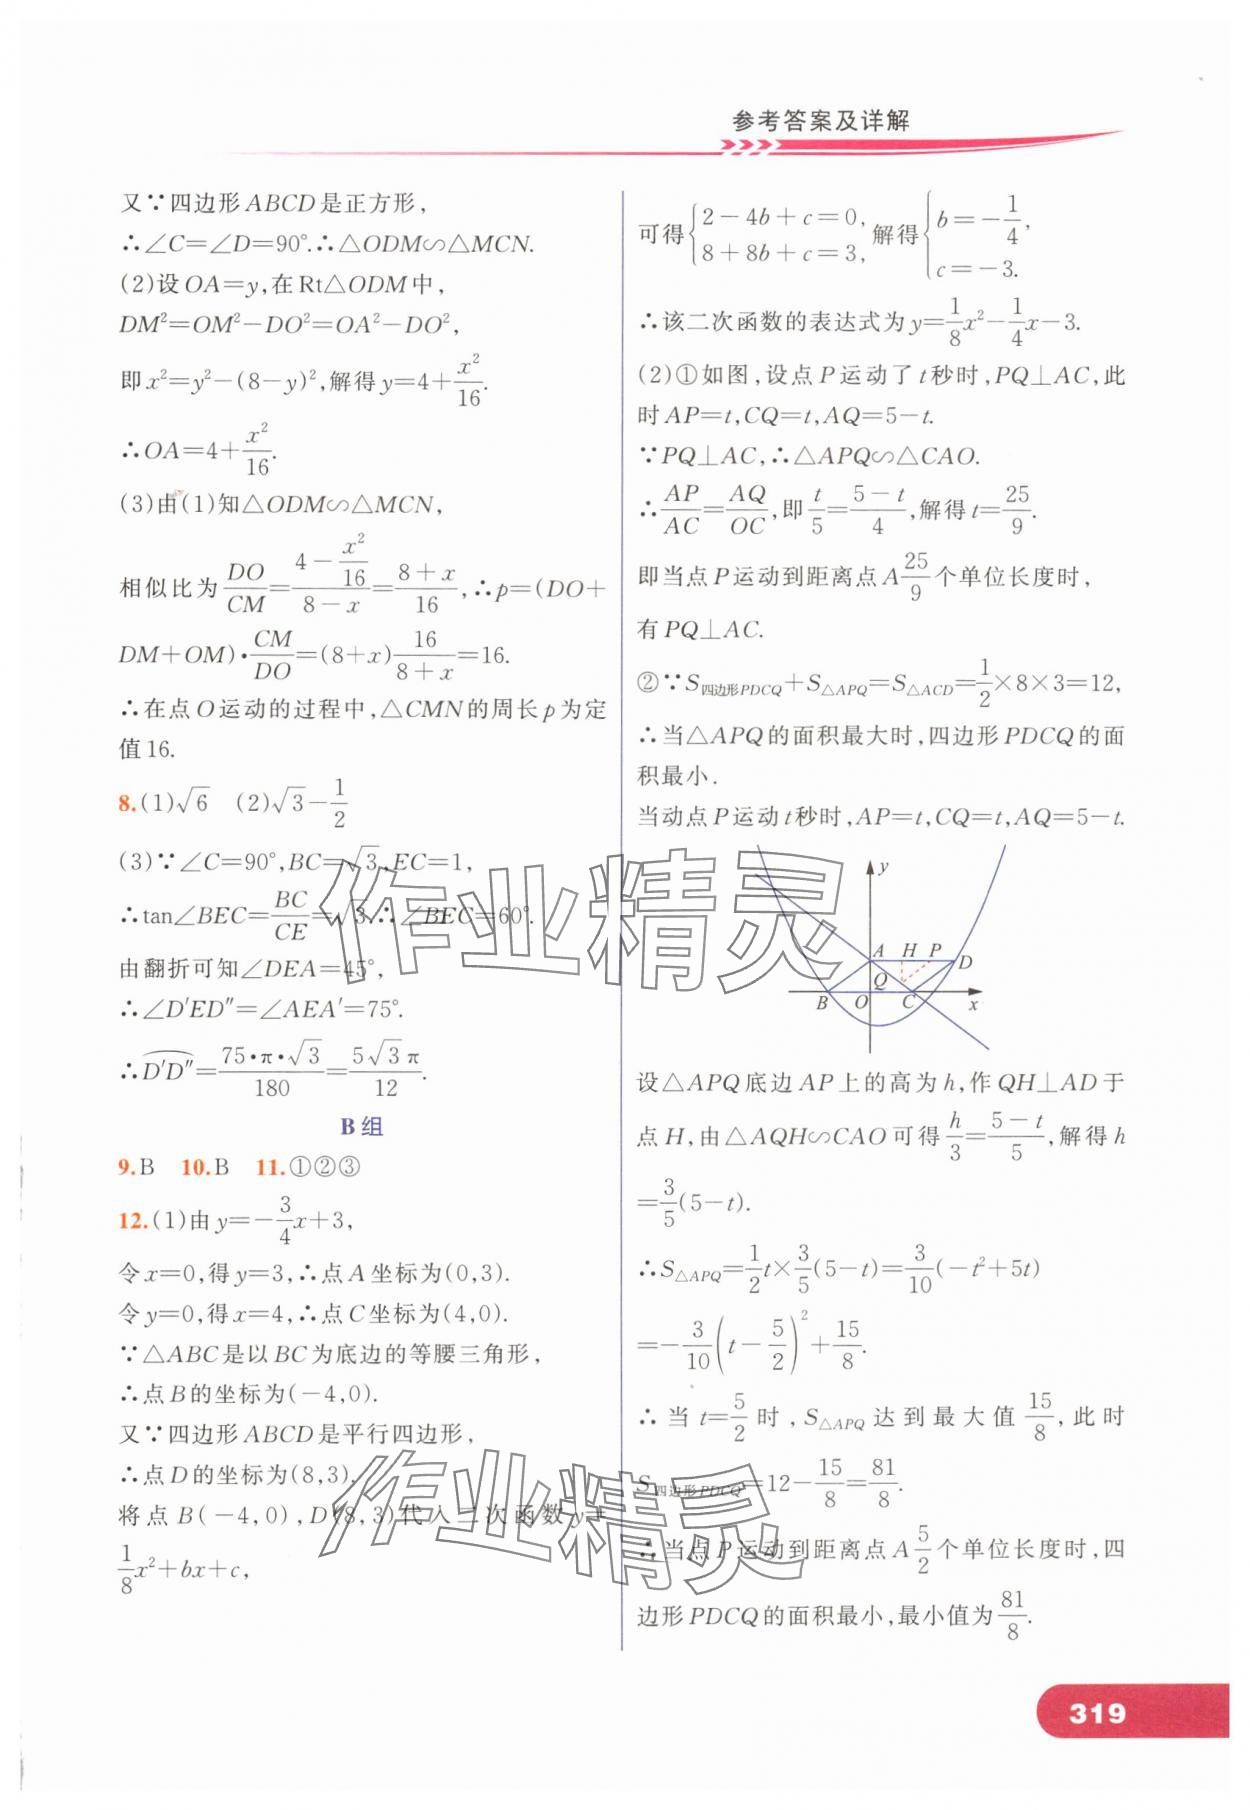 参考答案及详解
又∵四边形ABCD是正方形，
∴∠C=∠D=90°.∴△ODM∽△MCN.
(2)设OA=y,在Rt△ODM中，
DM²=OM²-DO²=OA²-DO²,
即x²=y²-(8-y)²,解得y=4+x²/16.
∴OA=4+x²/16.
(3)由(1)知△ODM∽△MCN,
相似比为DO/CM=(4-x²/16)/(8-x)=(8+x)/16,∴p=(DO+
DM+OM)·CM/DO=(8+x)16/(8+x)=16.
∴在点O运动的过程中,△CMN的周长p为定
值16.
8.(1)√6 (2)√3-1/2
(3)∵∠C=90°,BC=√3,EC=1,
∴tan∠BEC=BC/CE=√3.∴∠BEC=60°.
由翻折可知∠DEA=45°,
∴∠D′ED″=∠AEA′=75°.
∴D′D″=75·π·√3/180=5√3π/12.
B组
9.B 10.B 11.①②③
12.(1)由y=-3/4x+3,
令x=0,得y=3,∴点A坐标为(0,3).
令y=0,得x=4,∴点C坐标为(4,0).
∵△ABC是以BC为底边的等腰三角形，
∴点B的坐标为(-4,0).
又∵四边形ABCD是平行四边形，
∴点D的坐标为(8,3).
将点B(-4,0),D(8,3)代入二次函数y=
1/8x²+bx+c,
可得{2-4b+c=0, 8+8b+c=3, 解得{b=-1/4, c=-3.
∴该二次函数的表达式为y=1/8x²-1/4x-3.
(2)①如图,设点P运动了t秒时,PQ⊥AC,此
时AP=t,CQ=t,AQ=5-t.
∵PQ⊥AC,∴△APQ∽△CAO.
∴AP/AC=AQ/OC,即t/5=(5-t)/4,解得t=25/9.
即当点P运动到距离点A25/9个单位长度时，
有PQ⊥AC.
②∵S四边形PDCQ+S△APQ=S△ACD=1/2×8×3=12,
∴当△APQ的面积最大时,四边形PDCQ的面
积最小.
当动点P运动t秒时,AP=t,CQ=t,AQ=5-t.
y
A H P D
Q
B O C x
设△APQ底边AP上的高为h,作QH⊥AD于
点H,由△AQH∽CAO可得h/3=(5-t)/5,解得h
=3/5(5-t).
∴S△APQ=1/2t×3/5(5-t)=3/10(-t²+5t)
=-3/10(t-5/2)²+15/8.
∴当t=5/2时,S△APQ达到最大值15/8,此时
S四边形PDCQ=12-15/8=81/8.
∴当点P运动到距离点A5/2个单位长度时,四
边形PDCQ的面积最小,最小值为81/8.
作业精灵
作业精灵
319